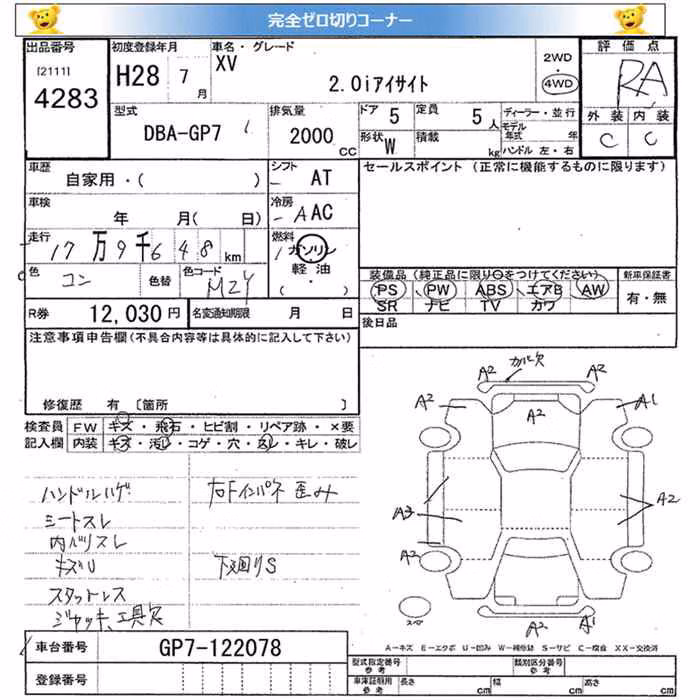 完全ゼロ切りコーナー
出品番号
[2111]
4283
初度登録年月
H28 7月
車名・グレード
XV
2.0iアイサイト
2WD
・
4WD
評価点
RA
外装 内装
C C
型式
DBA-GP7
排気量
2000 CC
ドア 5
定員 5人
形状 W
積載 kg
ディーラー・並行
モデル年式 年
ハンドル 左・右
車歴
自家用・( )
シフト
AT
セールスポイント (正常に機能するものに限ります)
車検
年 月( 日)
冷房
AAC
走行
17万9千648km
燃料
ガソリン
軽油
( ・ )
色
コン
色替
色コード
MZY
装備品(純正品に限り○をつけてください)
新車保証書
PS PW ABS エアB AW
SR ナビ TV カワ
有・無
R券 12,030円
名変通知期限 月 日
後日品
注意事項申告欄(不具合内容等は具体的に記入して下さい)
修復歴 有 〔箇所 〕
検査員記入欄
FW キズ・飛石・ヒビ割・リペア跡・×要
内装 キズ・汚レ・コゲ・穴・スレ・キレ・破レ
ハンドルハゲ
シートスレ
内バリスレ
キズU
スタットレス
ジャッキ、工具欠
右Fインパネ歪み
下廻りS
A2 カバー欠 A2
A2 A2 A1
A3 A2
A2
スペア
A2 A1
A-キズ E-エクボ U-凹み W-補修跡 S-サビ C-腐食 XX-交換済
車台番号 GP7-122078
登録番号
型式指定番号 参考
類別区分番号 参考
車庫証明用 参考
長さ cm 幅 cm 高さ cm